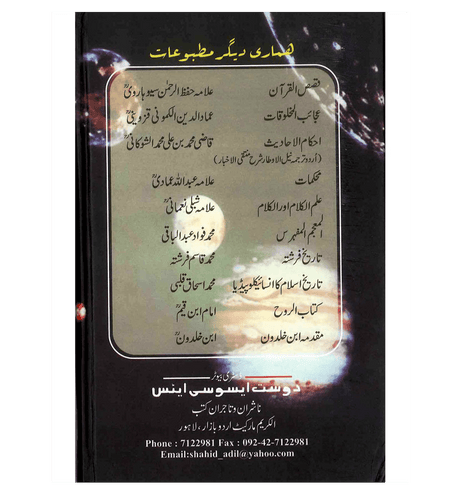 ھماری دیگر مطبوعات
قصص القرآن علامہ حفظ الرحمٰن سیوہارویؒ
عجائب المخلوقات عماد الدین الکمونی قزوینیؒ
احکام الاحادیث قاضی محمد بن علی محمد الشوکانیؒ
(اُردو ترجمہ نیل الاوطار شرح منتقی الاخبار)
محکمات علامہ عبداللہ عمادیؒ
علم الکلام اور الکلام علامہ شبلی نعمانیؒ
المعجم المفہرس محمد فواد عبدالباقی
تاریخ فرشتہ محمد قاسم فرشتہ
تاریخ اسلام کا انسائیکلوپیڈیا محمد اسحاق قلبی
کتاب الروح امام ابن قیمؒ
مقدمہ ابن خلدون ابن خلدونؒ
ڈسٹری بیوٹر
دوست ایسوسی ایٹس
ناشران و تاجران کتب
الکریم مارکیٹ اردو بازار، لاہور
Phone : 7122981 Fax : 092-42-7122981
Email:shahid_adil@yahoo.com